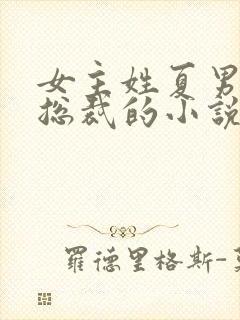 女主姓夏男
总裁的小說
羅德里格斯-